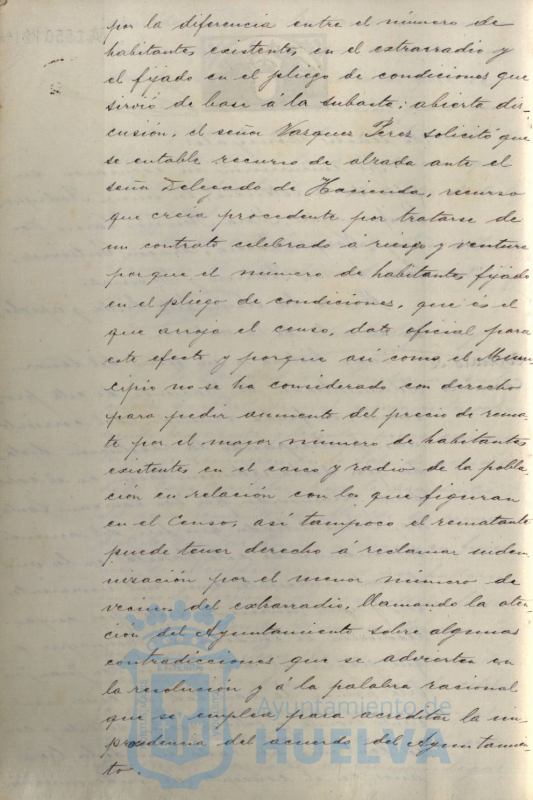 por la diferencia entre el número de
habitantes existentes en el extrarradio y
el fijado en el pliego de condiciones que
sirvió de base á la subasta: abierta dis-
cusión, el señor Vazquez Perez solicitó que
se entable recurso de alzada ante el
señor Delegado de Hacienda, recurso
que creia procedente por tratarse de
un contrato celebrado á riesgo y ventura
porque el número de habitantes fijado
en el pliego de condiciones, que és el
que arroja el censo, dato oficial para
este efecto y porque así como el Muni-
cipio no se ha considerado con derecho
para pedir aumento del precio de rema-
te por el mayor número de habitantes
existentes en el casco y radio de la pobla-
ción en relación con los que figuran
en el Censo, así tampoco el rematante
puede tener derecho á reclamar indem-
nización por el menor número de
vecinos del extrarradio, llamando la aten-
ción del Ayuntamiento sobre algunas
contradicciones que se advierten en
la resolución y á la palabra racional
que se emplea para acreditar la im-
procedencia del acuerdo del Ayuntamien-
to.
Ayuntamiento de
HUELVA